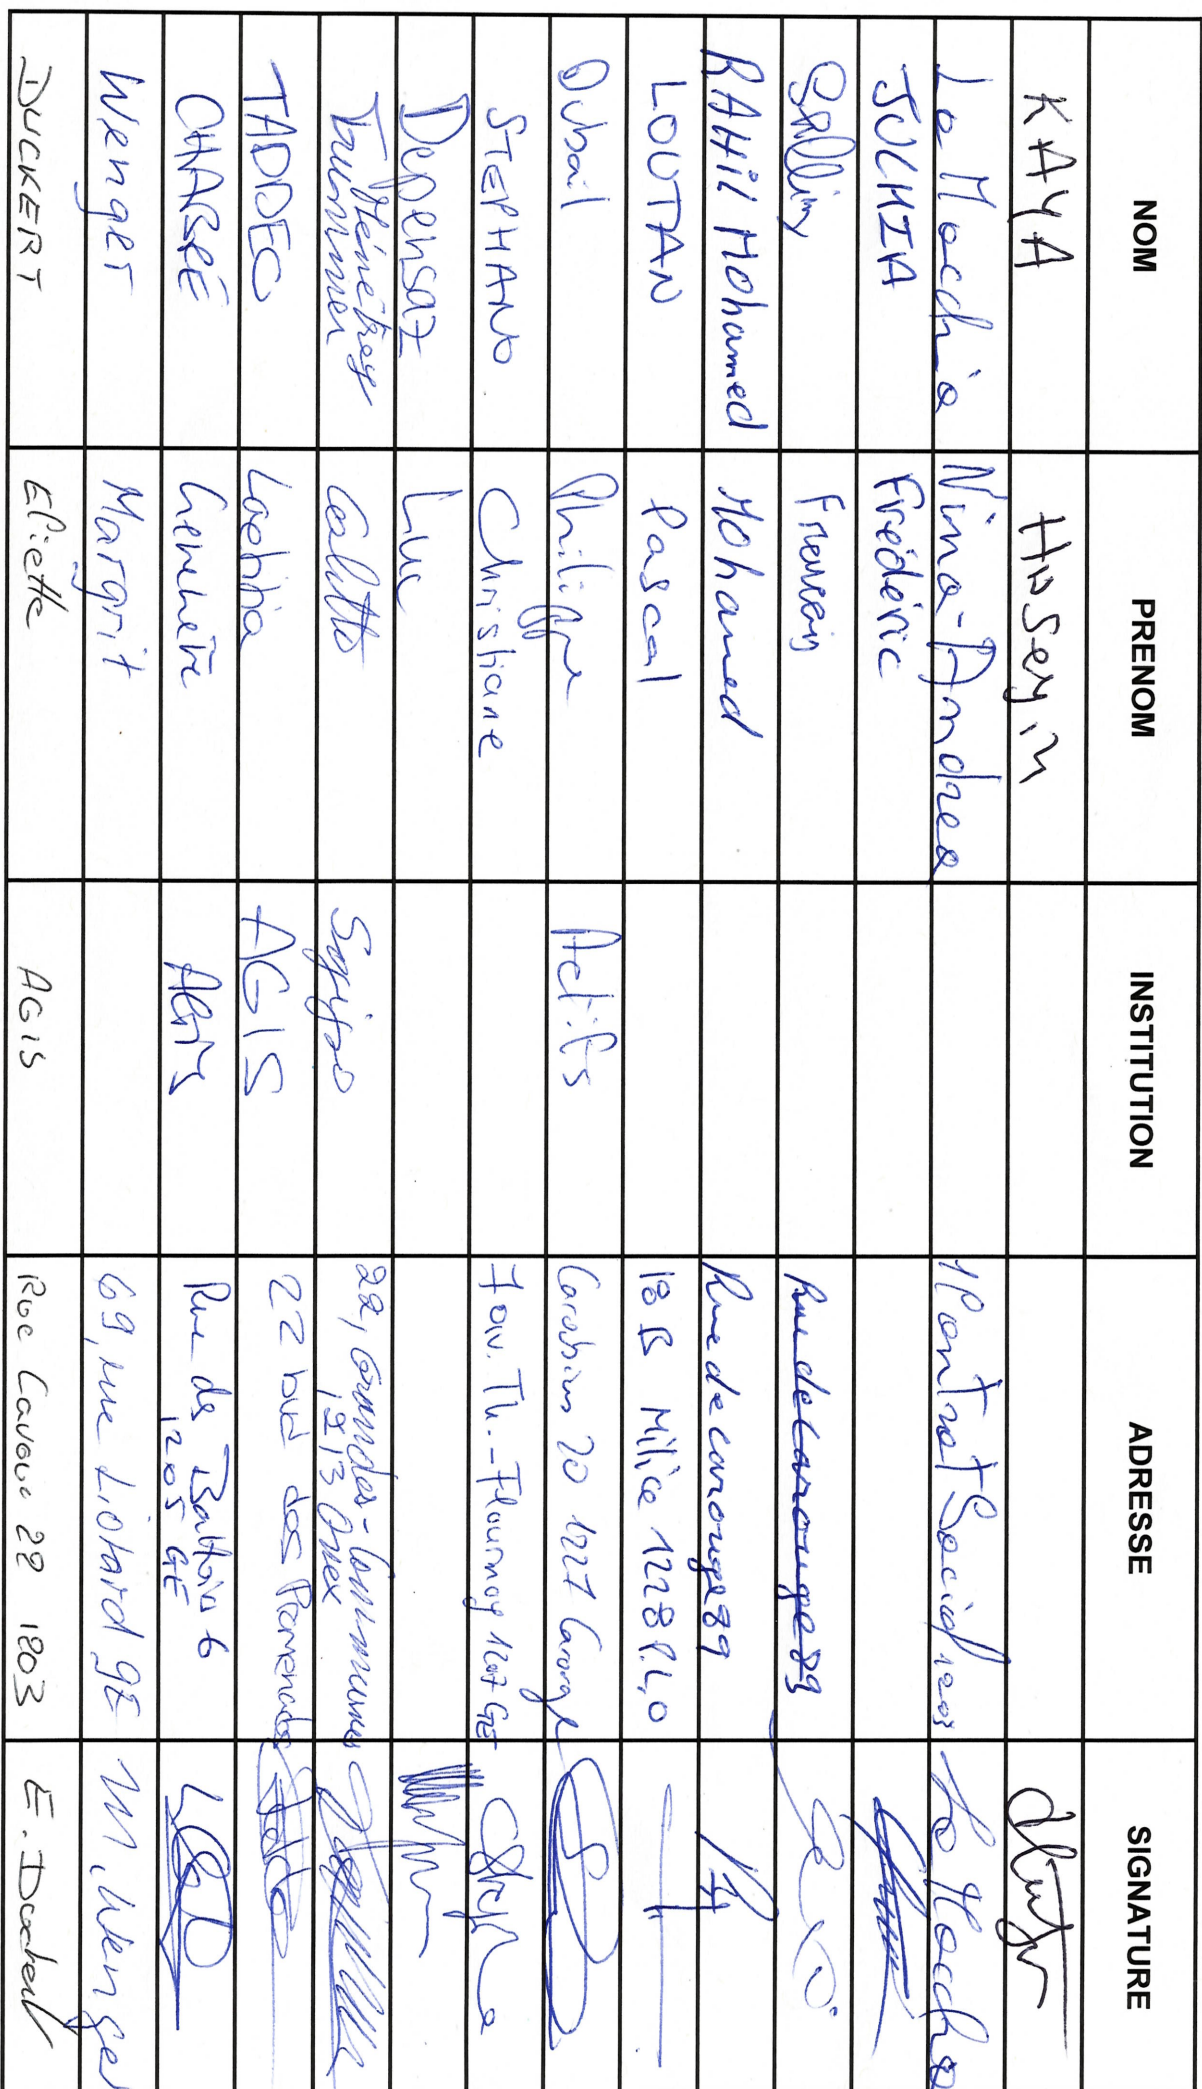 NOM PRENOM INSTITUTION ADRESSE SIGNATURE
KAYA Hüseyin
La Macchia Nina-Andrea 1 Contrat Social 1203 La Macchia
JUCHIA Frédéric
Rue de Carouge 89
RAHIL Mohamed Mohamed Rue de carouge 89
LOUTAN Pascal 18 B Milice 1228 P.L.O
Dubail Philippe Actifs Carabins 20 1227 Carouge
STEPHANO Christiane 7 av. Th.-Flournoy 1207 GE
Dépensaz Luc
Ménétrey
22, Grandes-Communes
1213 Onex
TADDEO Laetitia AGIS 22 bvd des Promenades
CHABÉE AGIS Rue de 6
1205 GE
Wenger Margrit 69, rue Liotard GE M. Wenger
DUCKERT Eliette AGIS Rue Cavour 22 1203 E. Duckert